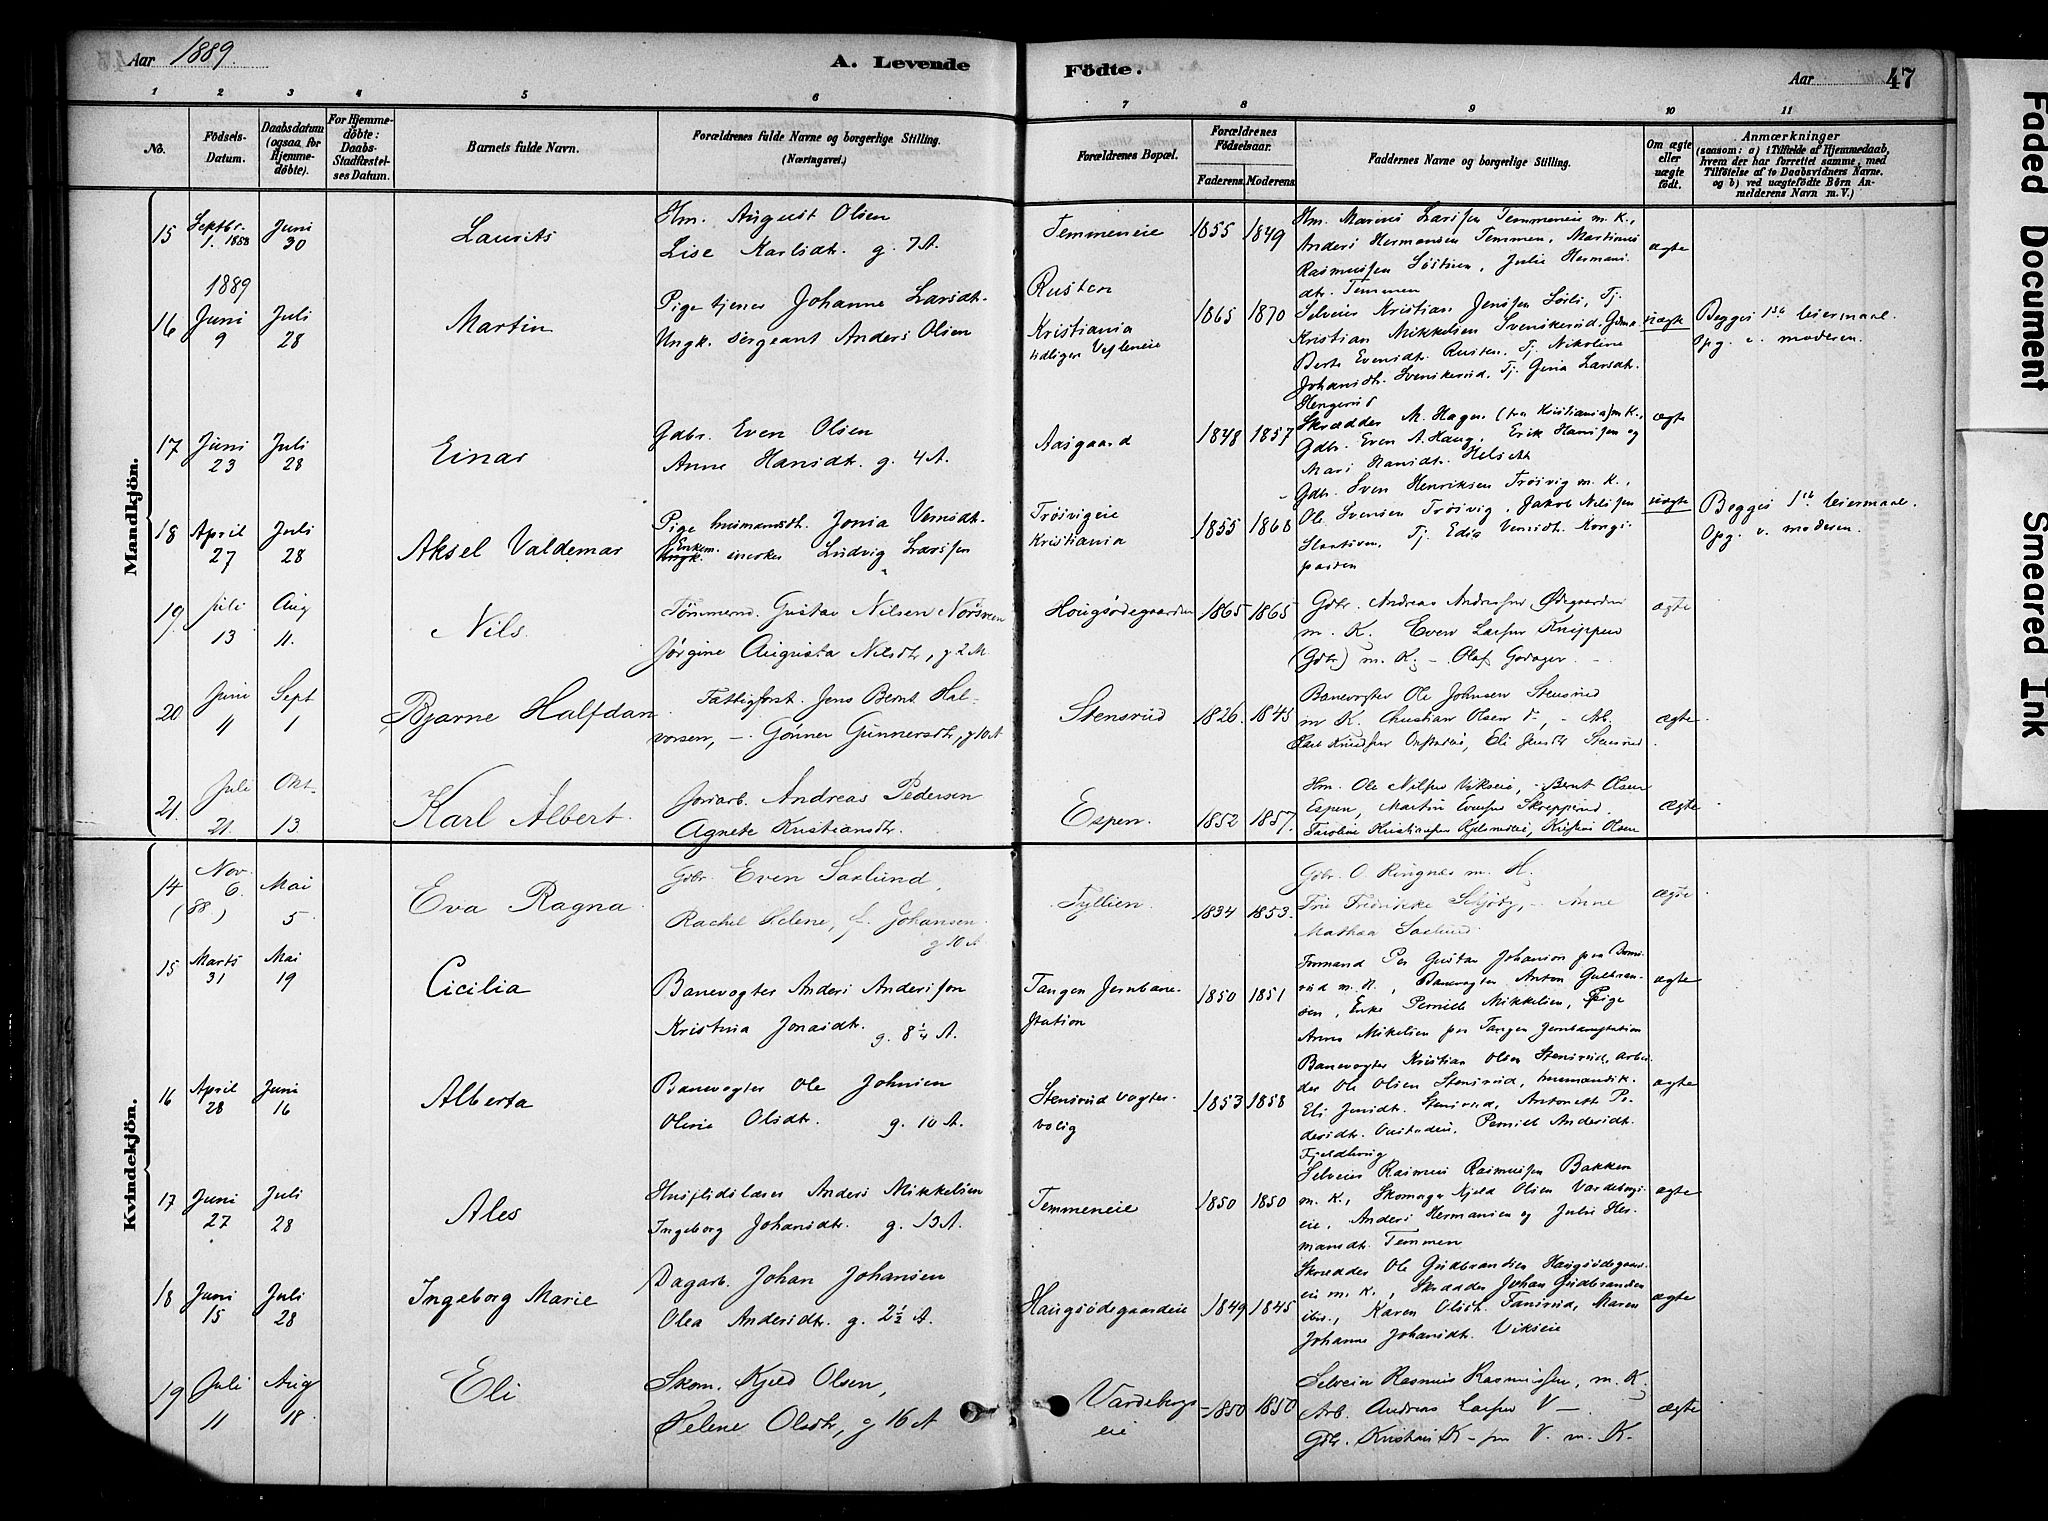 Aar 1889. A. Levende Födte. Aar 47
1 2 3 4 5 6 7 8 9 10 11
No. Födsels-Datum. Daabsdatum (ogsaa for Hjemmedöbte). For Hjemmedöbte: Daabs-Stadfæstelses Datum. Barnets fulde Navn. Forældrenes fulde Navne og borgerlige Stilling. (Næringsvei.) Forældrenes Bopæl. Forældrenes Födselsaar. Faderens. Moderens. Faddernes Navne og borgerlige Stilling. Om ægte eller uægte födt. Anmærkninger (saasom: a) i Tilfælde af Hjemmedaab, hvem der har forrettet samme, med Tilföielse af to Daabsvidners Navne. og b) ved uægtefödte Börn Anmelderens Navn m. V.)
Mandkjön.
15 Septbr. 1. 1888 Juni 30 Laurits
Hm. August Olsen
Lise Karlsdtr. g. 7 A.
Temmeneie 1855 1849
Hm. Marius Larssen Temmeneie m. K.,
Anders Hermansen Temmen, Martinus
Rasmussen Sóstuen, Julie Hermansdtr. Temmen
ægte
1889
16 Juni 9 Juli 28 Martin
Pige tjener Johanne Larsdtr.
Ungk. sergeant Anders Olsen
Rusten
Kristiania
tidligere Vesleneie
1865 1870
Selveier Kristian Jenssen Sörli, Tj.
Kristian Mikkelsen Svenskerud, Gdm.
Berte Evensdtr. Rusten, Tj. Nikoline
Johansdtr. Svenskerud, Tj. Gina Larsdtr.
Hengerud
uægte
Begges 1ste leiermaal.
Opg. v. moderen.
17 Juni 23 Juli 28 Einar
Gdbr. Even Olsen
Anne Hansdtr. g. 4 A.
Aasgaard 1848 1857
Skrædder M. Hagen (fra Kristiania) m K.,
Gdbr. Even A. Haug, Erik Hanssen og
Mari Hansdtr. Helseth
ægte
18 April 27 Juli 28 Aksel Valdemar
Pige husmandsdt. Jonia Vernsdtr.
Enkem. Ungk. snerker Ludvig Larssen
Tröivigeie
Kristiania
1855 1868
Gdbr. Sven Henriksen Tröivig m. K.,
Ole Svensen Tröivig, Jakob Nilssen
Tj. Edia Vernsdt. Kongsparten
uægte
Begges 1ste leiermaal.
Opg. v. moderen.
19 Juli 13 Aug 11. Nils.
Tømmerm. Gustav Nilsen Norsveen
Jørgine Augusta Nilsdtr, g 2 M.
Hougsödegaarden 1865 1865
Gdbr. Andreas Andersen Ødegaarden
m. K. Even Larsen Knippen
(Gdbr) m. K. - Olaf Godager. -
ægte
20 Juni 11 Sept 1 Bjarne Halfdan
Fattigforst. Jens Bernt Halvorsen, - Gunner Gunnersdtr, g 10 A
Stensrud 1826. 1845
Banevogter Ole Johnsen Stensrud
m K. Christian Olsen d°, - Arb.
Karl Knudsen Onstadeie, Eli Jensdtr Stensrud.
ægte
21. Juli 21. Okt. 13. Karl Albert.
Jordarb. Andreas Pedersen
Agnete Kristiansdtr.
Espen. 1852 1857.
Hm. Ole Nilsen Vikseie, - Bernt Olsen
Espen, Martin Evensen Skrepperud,
Karoline Kristiansen Kjelsrudeie, Kristine Olsen
ægte
Kvindekjön.
14 (88) Nov. 6. Mai 5 Eva Ragna.
Gdbr. Even Saxlund,
Rachel Helene, f. Johansen.
g 10 A
Tyllien. 1834 1853.
Gdbr. O. Ringnæs m. H.
Frue Fredrikke Schjödz, - Anne
Mathea Saxlund
ægte
15 Marts 31 Mai 19 Cicilia
Banevogter Anders Anderssen
Kristina Jonasdtr. g. 8 1/4 A.
Tangen Jernbanestation 1850 1851
Formand Per Gustav Johanson paa
m. K., Banevogter Anton Gulbransen, Enke Pernille Mikkelsen, Pige
Anna Mikelsen paa Tangen Jernbanestation
ægte
16 April 28 Juni 16 Alberta
Banevogter Ole Johnsen
Oline Olsdtr. g. 10 A.
Stensrud vogterbolig 1853 1858
Banevogter Kristian Olsen Stensrud, arbeider Ole Olsen Stensrud, husmandsk.
Eli Jensdt. Stensrud, Antonette Pedersdt. Onstadeie, Pernille Andersdt.
Fjeldhaug
ægte
17 Juni 27 Juli 28 Ales
Husflidslærer Anders Mikkelsen
Ingeborg Johansdtr. g. 13 A.
Temmeneie 1850 1850
Selveier Rasmus Rasmussen Bakken
m. K., Skomager Kjeld Olsen Vardebergseie, Anders Hermansen og Julie Hermansdt. Temmen
ægte
18 Juni 15 Juli 28 Ingeborg Marie
Dagarb. Johan Johansen
Olea Andersdtr. g. 2 1/2 A.
Haugsödegaardeie 1849 1845
Skrædder Ole Gudbrandsen Haugsödegaardseie m. K., Skrædder Johan Gudbrandsen
ibr., Karen Olsdt. Tansrud, Maren
Johanne Johansdt. Vikseie
ægte
19 Juli 11 Aug 18. Eli
Skom. Kjeld Olsen,
Helene Olsdtr, g 16 A
Vardebergseie 1850 1850
Selveier Rasmus Rasmussen, m. K.
Arb. Andreas Larsen V -.
Gdbr. Kristian K - paa V. m. K.
ægte
Faded Document
Smeared Ink